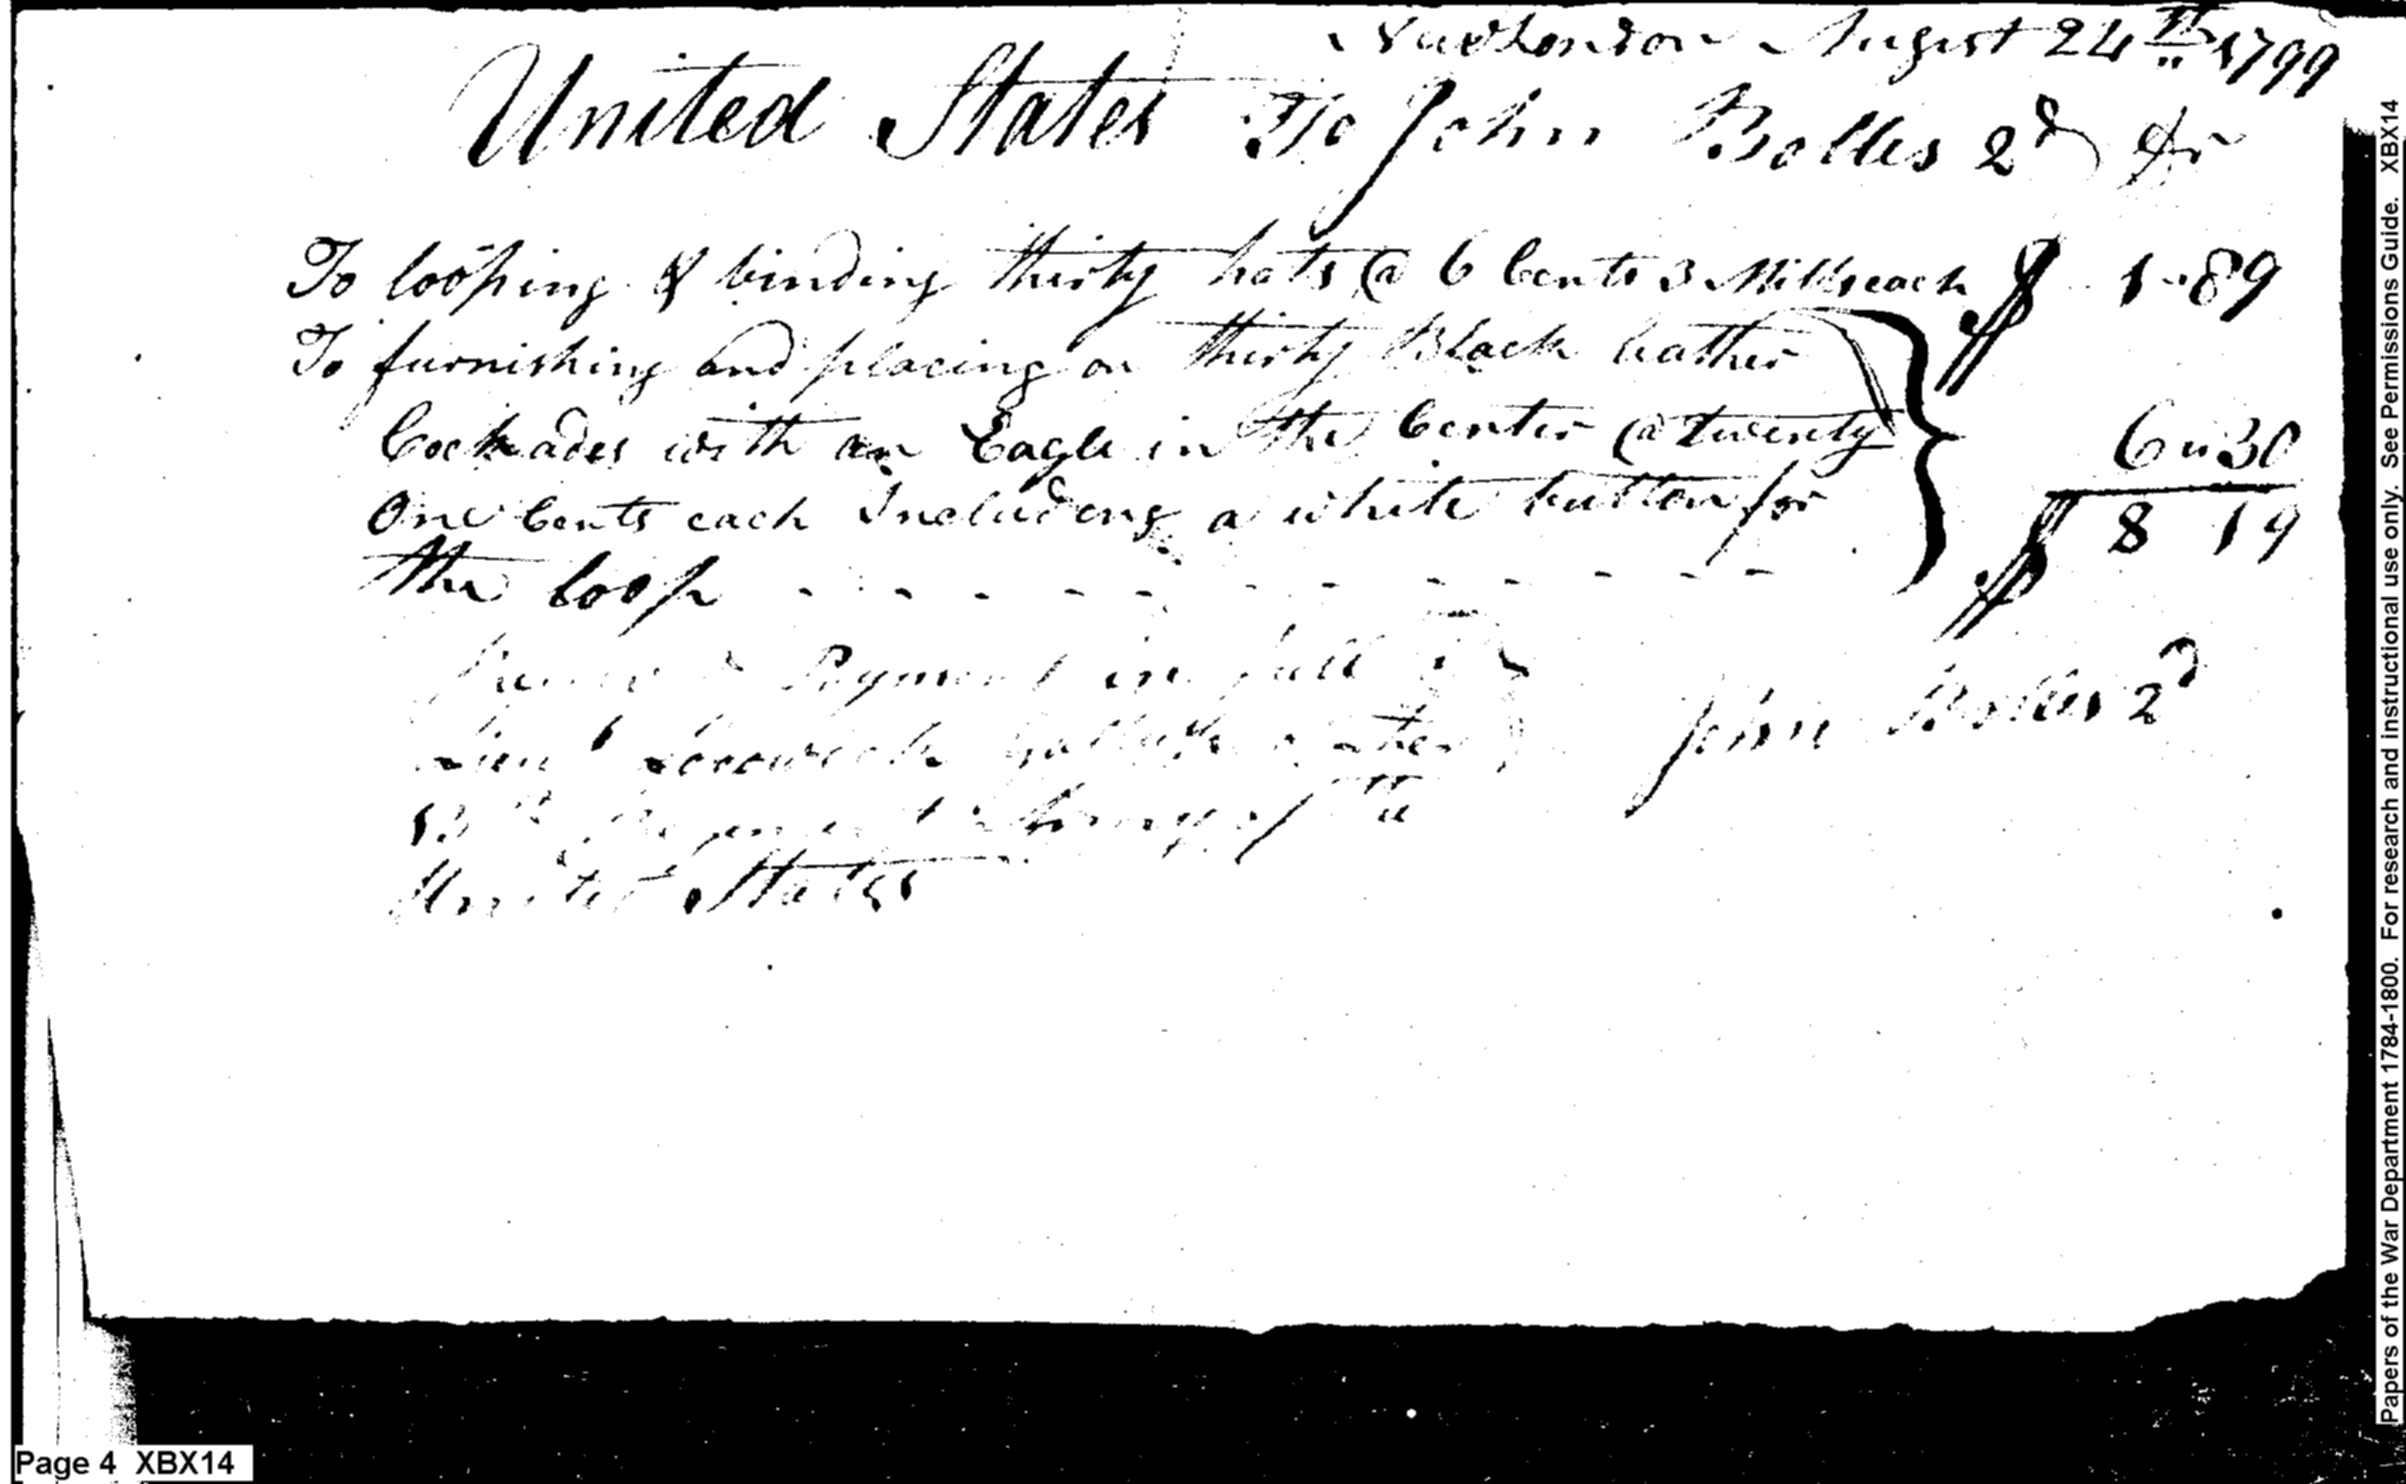 New London August 24th 1799
United States To John Bolles 2d Dr
To looping & binding thirty hats @ 6 Cents 3 Mills each $ 1"89
To furnishing and placing on thirty Black leather
Cockades with an Eagle in the Center @ twenty
One Cents each Including a white button for
the loop - - - - - - - - - - - 6"30
$ 8 19
Payment in full
John Bolles 2d
Army of the
United States
Page 4 XBX14
Papers of the War Department 1784-1800. For research and instructional use only. See Permissions Guide. XBX14